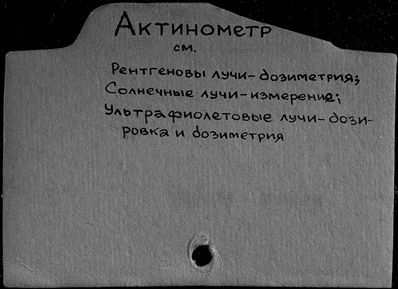 Актинометр
см.
Рентгеновы лучи-дозиметрия;
Солнечные лучи-измерение;
Ультрафиолетовые лучи-дози-
ровка и дозиметрия